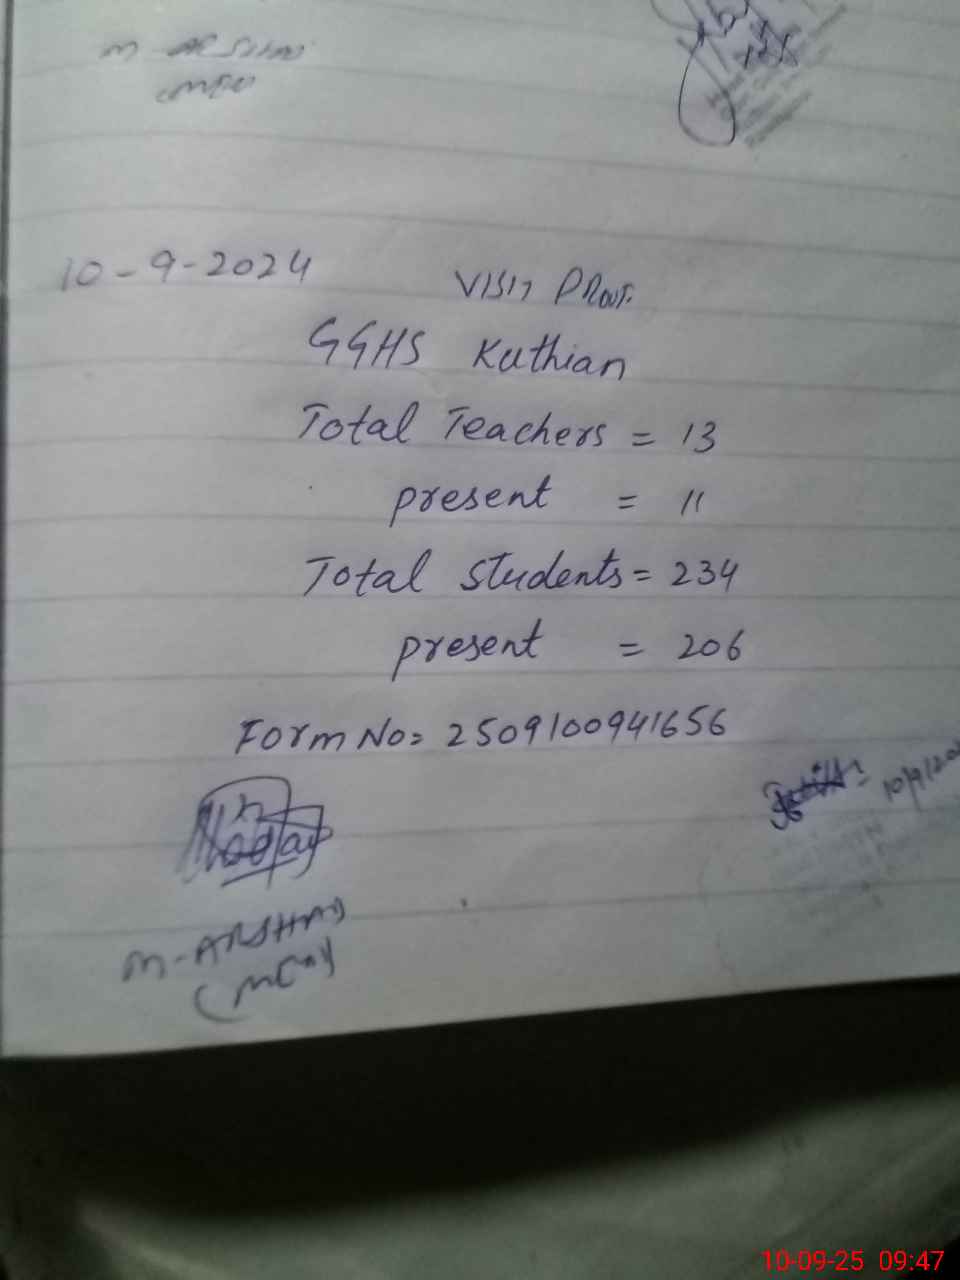 M-ARSHAD
10-9-2024
VISIT PROOF
GGHS Kuthian
Total Teachers = 13
present = 11
Total Students = 234
present = 206
Form No = 2509100941656
10/9/20
M-ARSHAD
10-09-25 09:47